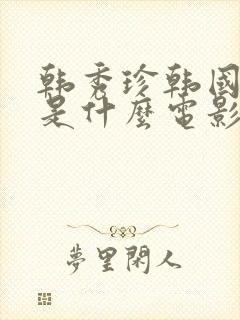 韩秀珍韩國
是什麼電影
夢里閑人